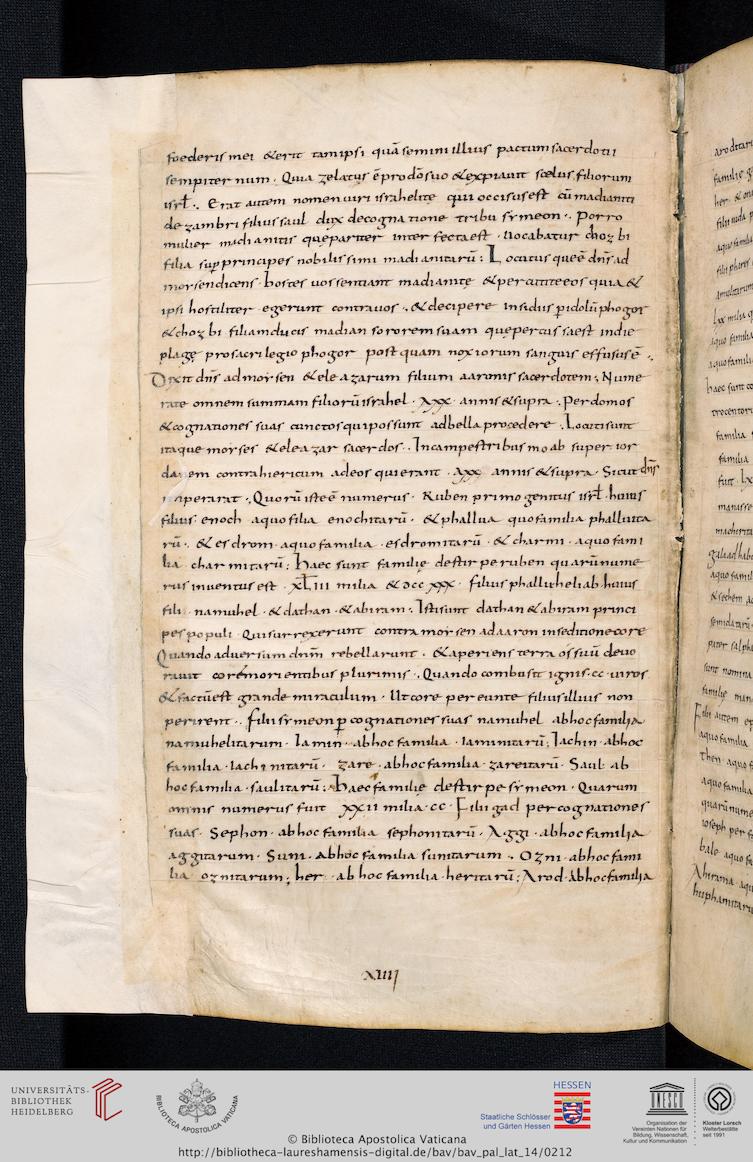 foederis mei &erit tam ipsi quā semini illius pactum sacerdotii
sempiternum · Quia zelatus ē pro dō suo &expiauit scelus filiorum
isrl̄ ·. Erat autem nomen uiri israhelite qui occisus est cū madianiti
de zambri filius saul dux de cognatione tribu symeon ·. Porro
mulier madianitis quę pariter interfecta est · uocabatur chozbi
filia sup̱ principes nobilissimi madianitarū : Locutus que ē dn̄s ad
morsen dicens · hostes uos sentiant madianite &percutite eos quia &
ipsi hostiliter egerunt contra uos ·. &decipere insidiis p̱ idolū phogor
&chozbi filiam ducis madian sororem suam quę percussa est in die
plagę pro sacrilegio phogor postquam noxiorum sanguis effusus ē ·.
Dixit dn̄s ad morsen &eleazarum filium aaronis sacerdotem ; Nume
rate omnem summam filiorū israhel · xxx · annis &supra ·. Per domos
&cognationes suas cunctos qui possunt ad bella procedere · Locuti sunt
itaque morses &eleazar sacerdos ·. In campestribus moab super ior
danem contra hiericum ad eos qui erant · xxx · annis &supra · Sicut dn̄s
imperarat ·. Quorū iste ē numerus · Ruben primogenitus isrl̄ · huius
filius enoch a quo filia enochitarū · &phallua quo familia phalluita
rū ·. &esdrom · a quo familia · esdromitarū · &charmi · a quo fami
lia · charmitarū : Haec sunt familie de stirpe ruben quarū nume
rus inuentus est · xLiii milia &dcc xxx · filius phallu heliab huius
filii · namuhel · &dathan · &abiram : Isti sunt dathan &abiram princi
pes populi · Qui surrexerunt contra morsen ad aaron in seditione core
Quando aduersum dnm̄ rebellarunt · &aperiens terra os suū deuo
rauit corē morientibus plurimis ·. Quando combussit ignis · cc · uiros
&factū est grande miraculum · Ut core pereunte filius illius non
perirent ·. filii symeon p̱ cognationes suas namuhel ab hoc familia
namuhelitarum · Iamin · ab hoc familia · iaminitarū ; Iachin · ab hoc
familia · iachinitarū · zare · ab hoc familia · zareitarū · Saul · ab
hoc familia · saulitarū : Haec familie de stirpe symeon · Quarum
omnis numerus fuit xxii milia · cc · Filii gad per cognationes
suas · Sephon · ab hoc familia sephonitarū · Aggi · ab hoc familia
aggitarum · Suni · ab hoc familia sunitarum ·. Ozni · ab hoc fami
lia oznitarum ; her · ab hoc familia heritarū ; Arod · Ab hoc familia
xiiii
UNIVERSITÄTS-
BIBLIOTHEK
HEIDELBERG
BIBLIOTHECA APOSTOLICA VATICANA
HESSEN
Staatliche Schlösser
und Gärten Hessen
UNESCO
Organisation der
Vereinten Nationen für
Bildung, Wissenschaft,
Kultur und Kommunikation
Kloster Lorsch
Welterbestätte
seit 1991
© Biblioteca Apostolica Vaticana
http://bibliotheca-laureshamensis-digital.de/bav/bav_pal_lat_14/0212